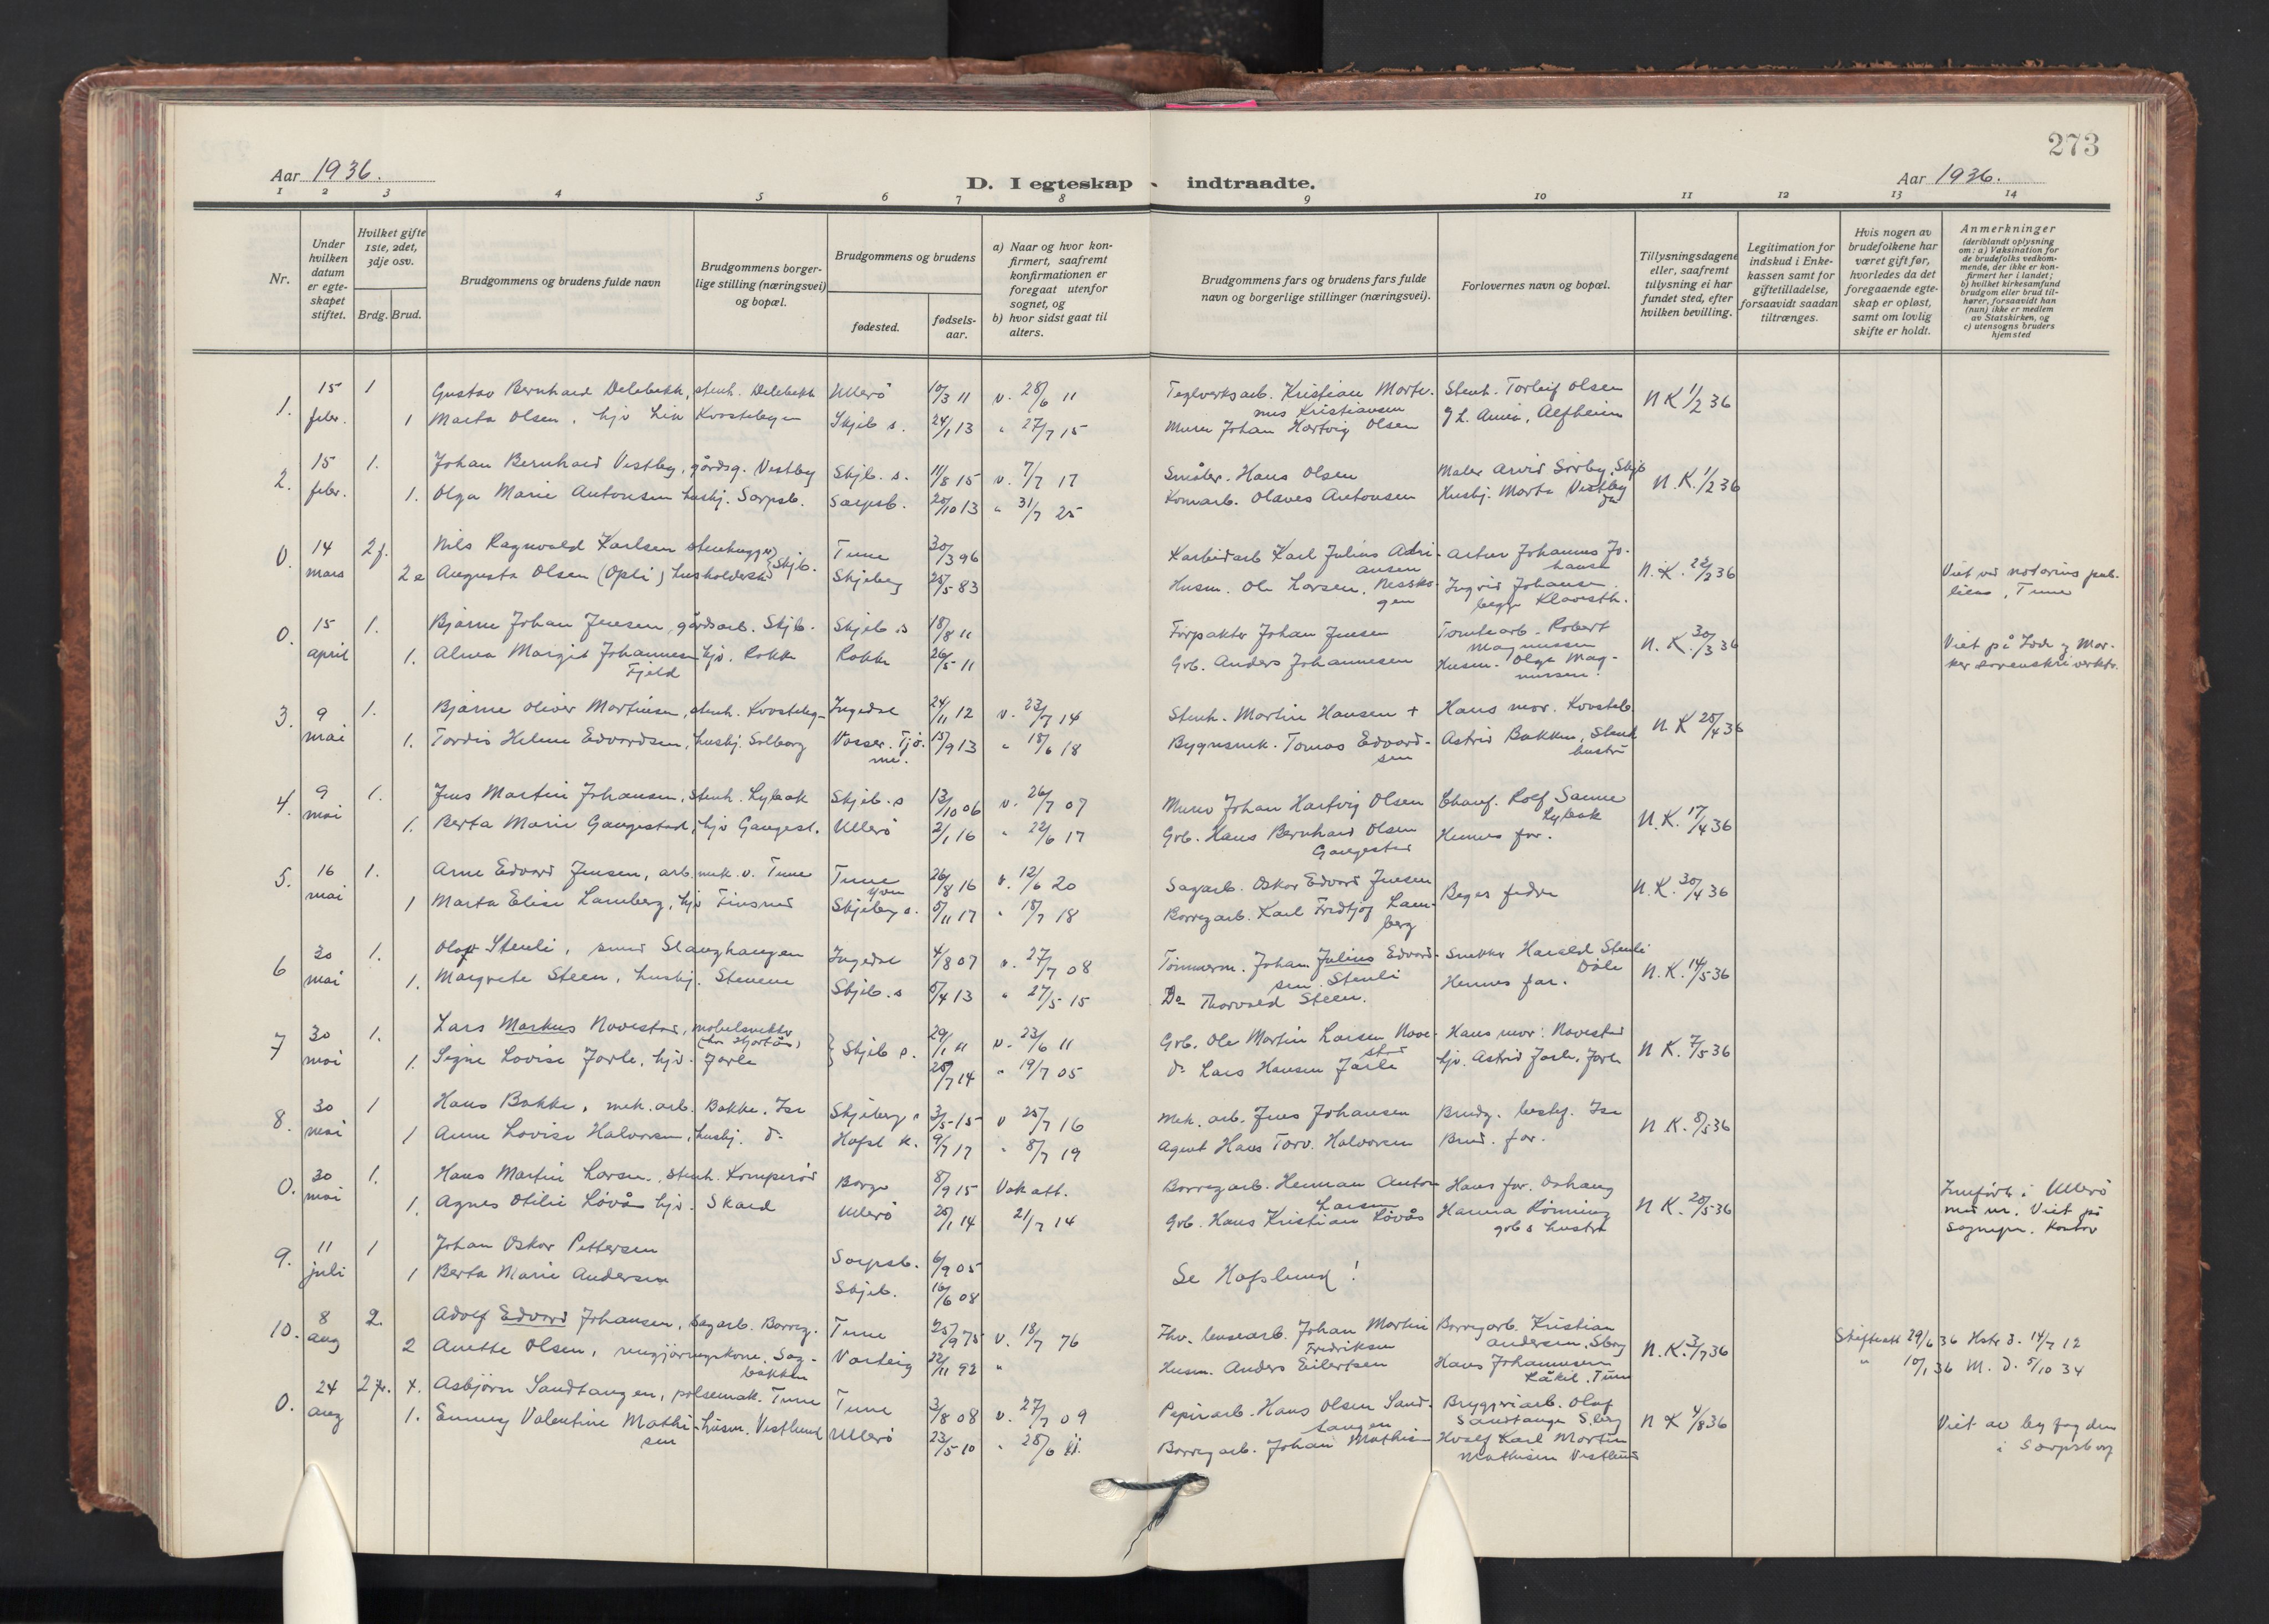 273
Aar 1936.
D. I egteskap - indtraadte.
Aar 1936.
1 2 3 4 5 6 7 8 9 10 11 12 13 14
Nr.
Under hvilken datum er egte-skapet stiftet.
Hvilket gifte 1ste, 2det, 3dje osv.
Brdg. Brud.
Brudgommens og brudens fulde navn
Brudgommens borger-lige stilling (næringsvei) og bopæl.
Brudgommens og brudens
fødested.
fødsels-aar.
a) Naar og hvor kon-firmert, saafremt konfirmationen er foregaat utenfor sognet, og
b) hvor sidst gaat til alters.
Brudgommens fars og brudens fars fulde navn og borgerlige stillinger (næringsvei).
Forlovernes navn og bopæl.
Tillysningsdagene eller, saafremt tillysning ei har fundet sted, efter hvilken bevilling.
Legitimation for indskud i Enke-kassen samt for giftetilladelse, forsaavidt saadan tiltrænges.
Hvis nogen av brudefolkene har været gift før, hvorledes da det foregaaende egte-skap er opløst, samt om lovlig skifte er holdt.
Anmerkninger
(deriblandt oplysning om: a) Vaksination for de brudefolks vedkom-mende, der ikke er kon-firmert her i landet;
b) hvilket kirkesamfund brudgom eller brud til-hører, forsaavidt han (hun) ikke er medlem av Statskirken, og
c) utensogns bruders hjemsted
1. 15 febr. 1 Gustav Bernhard Delebekk, stenh. Delebekk Ullerö 10/3 11 v. 28/6 11 Teglverksarb. Kristian Martinus Kristiansen Stenh. Torleif Olsen N K 1/2 36
1 Marta Olsen, hjv Kvastebyen Skjeb s. 24/1 13 " 27/7 15 Murer Johan Hartvig Olsen
2. 15 febr. 1. Johan Bernhard Vestby, gårdsg. Vestby Skjb. s. 11/8 15 v. 7/7 17 Småbr. Hans Olsen Maler Arvid Sörby, Skjb N.K. 1/2 36
1. Olga Marie Antonsen husbj. Sarpsb. Sarpsb. 20/10 13 " 31/7 25 Komarb. Olaves Antonsen Husbj. Marta Vestby
0. 14 mars 2 f. Nils Ragnvald Karlsen stenhugger Skjb. Tune 30/3 96 Karbidarb Karl Julius Adriansen Artur Johannes Johansen N.K. 22/2 36 Viet ved notarius publicus, Tune
2 e Augusta Olsen (Opli) husholdersk Skjeberg 25/5 83 Husm. Ole Larsen, Ingrid Johansen begge Klavesth.
0. 15 april 1. Bjarne Johan Jensen gårdsarb. Skjb. Skjeb s 18/8 11 Forpakter Johan Jensen Tomtearb. Robert Magnussen N.K. 30/3 36 Viet på Idde og Marker sorenskriverktr.
1. Alma Margit Johannesen Fjeld hjv. Rokke Rokke 26/5 11 Grb. Anders Johannesen Husm. Olga Magnussen.
3. 9 mai 1. Bjarne Oliver Martinsen, stenh. Kvasteby Ingedal 24/11 12 v. 23/7 14 Stenh. Martin Hansen + Hans mor. Kvasteb N K 25/4 36
1. Tordis Helene Edvardsen, husbj. Solborg Vasser. Tjöme. 15/9 13 " 18/6 18 Bygnsnek. Tomas Edvardsen Astrid Bakken,
4. 9 mai 1. Jens Martin Johansen, stenh. Lybak Skjeb. s 13/10 06 v. 26/7 07 Murer Johan Hartvig Olsen Chauf. Rolf Sanne Lybak N.K. 17/4 36
1. Berta Marie Gangestad, hjv Gangest. Ullerö 2/1 16 " 22/6 17 Grb. Hans Bernhard Olsen Gangestad Hennes far.
5. 16 mai 1. Arne Edvard Jensen, arb. mek. v. Tune Tune 26/8 16 v. 12/6 20 Sagarb. Oskar Edvard Jensen Beges fedre N.K. 30/4 36
1 Marta Elise Lamberg, hjv Finsrud Skjeberg s. 5/11 17 " 18/7 18 Borregarb. Karl Fridtjof Lamberg
6 30 mai 1. Olaf Stenli, smed Slanghaugen Ingedal 4/8 07 v. 27/7 08 Tömmerm. Johan Julius Edvardsen Stenli Snekker Harald Stenli Döle N.K. 14/5 36
1. Margrete Steen, husbj. Stenene Skjeb. s 5/4 13 " 27/5 15 Do Thorvald Steen. Hennes far.
7 30 mai 1. Lars Markus Navestad, möbelsnekker (hr Hjortås) Skjeb s. 29/1 11 v. 23/6 11 Grb. Ole Martin Larsen Navestad Hans mor: Navestad N K. 7/5 36
1. Signe Lovise Jarle, hjv. Jarle 25/7 14 " 19/7 05 Do Lars Hansen Jarle hjv. Astrid Jarle, Jarle
8. 30 mai 1 Hans Bakke, mek. arb. Bakke. Ise Skjeberg s 3/5 15 v 25/7 16 Mek. arb. Jens Johansen Brudg. Ise N K. 8/5 36
1 Anne Lovise Halvorsen, husbj. do Hafsl k. 9/7 17 " 8/7 19 Agent Hans Torv. Halvorsen Brud. far.
0. 30 mai 1. Hans Martin Larsen, stenh. Kamperöd Borge 8/9 15 Vak att. Borregarb. Herman Anton Larsen Hans far. N K. 20/5 36 Innförb i Ullerö
1. Agnes Otilie Lövås hjv. Skard Ullerö 25/1 14 21/7 14 Grb. Hans Kristian Lövås Hanna Rönning grb s hustru med nr. Viet på sognepr. kontor
9. 11 juli 1 Johan Oskar Pettersen Sarpsb. 6/9 05 Se Hafslund!
1 Berta Marie Andersen Skjeb. 16/6 08
10. 8 aug 2. Adolf Edvard Johansen, Sagarb. Borreg. Tune 25/9 75 v. 18/7 76 Fhv. lensearb. Johan Martin Fredriksen Borregarb. Kristian Andersen, Sbrg N.K. 3/7 36 Skifteatt 29/6 36 Hstr d. 14/7 12
2 Anette Olsen, rengjöringskone. Sagbakken Varteig 22/11 92 " Husm. Anders Eilertsen Hans Johannesen Råkil. Tune " 10/1 36 M. d. 5/10 34
0. 24 aug 2 fr. Asbjörn Sandtangen, pölsemak. Tune Tune 3/8 08 v. 27/7 09 Papirarb. Hans Olsen Sandtangen Bryggeriarb. Olaf Sandtangen S.brg N K 4/8 36 Viet av byfogden i Sarpsborg
1. Emmy Valentine Mathisen husm. Vestlund Ullerö 23/5 10 " 28/6 11. Borregarb. Johan Mathisen Karl Martin Mathisen Vestlund